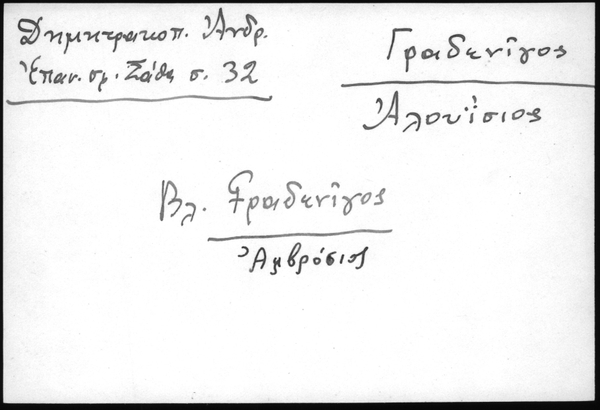 Δημητρακοπ. Ἀνδρ.
Ἐπαν. σφ. Σάθα σ. 32
Γραδενῖγος
Ἀλουΐσιος
Βλ. Γραδενῖγος
Ἀμβρόσιος